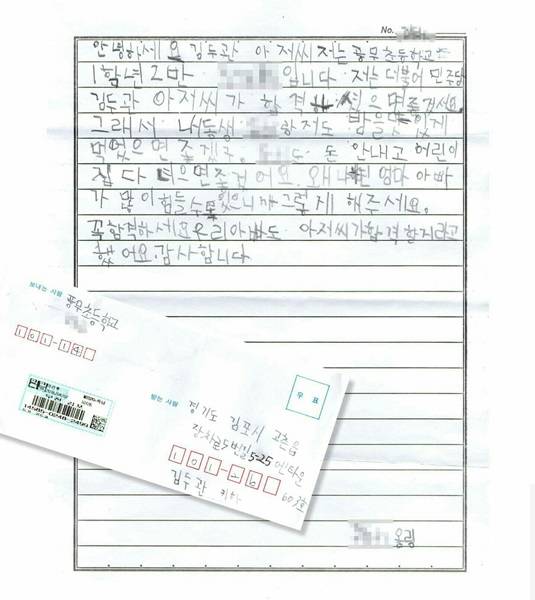 No.
안녕하세요 김두관 아저씨 저는 풍무초등학교
1학년 2반 입니다. 저는 더불어 민주당
김두관 아저씨가 합격 했으면 좋겠어요
그래서 내동생 하저도 밥을 맛있게
먹었으면 좋겠구, 도 돈 안내고 어린이
집 다녔으면 좋겠어요. 왜냐면 엄마 아빠
가 많이 힘들수도 있으니까 그렇게 해주세요.
꼭 합격하세요 우리아빠도 아저씨가 합격할거라고
했어요. 감사합니다
보내는 사람
풍무초등학교
우표
받는 사람
경기도 김포시 고촌읍
장차로5번길 5-25
603호
김두관 귀하
올림